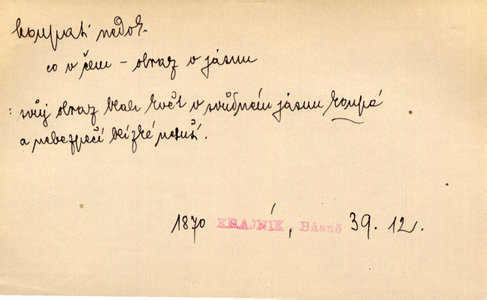 koupati nedok.
co v čem – obraz v jásnu
: svůj obraz košt v svůdném jásnu koupá
a nebezpečí blízké netuší.
1870 KRAJNÍK, Básně 39. 12.